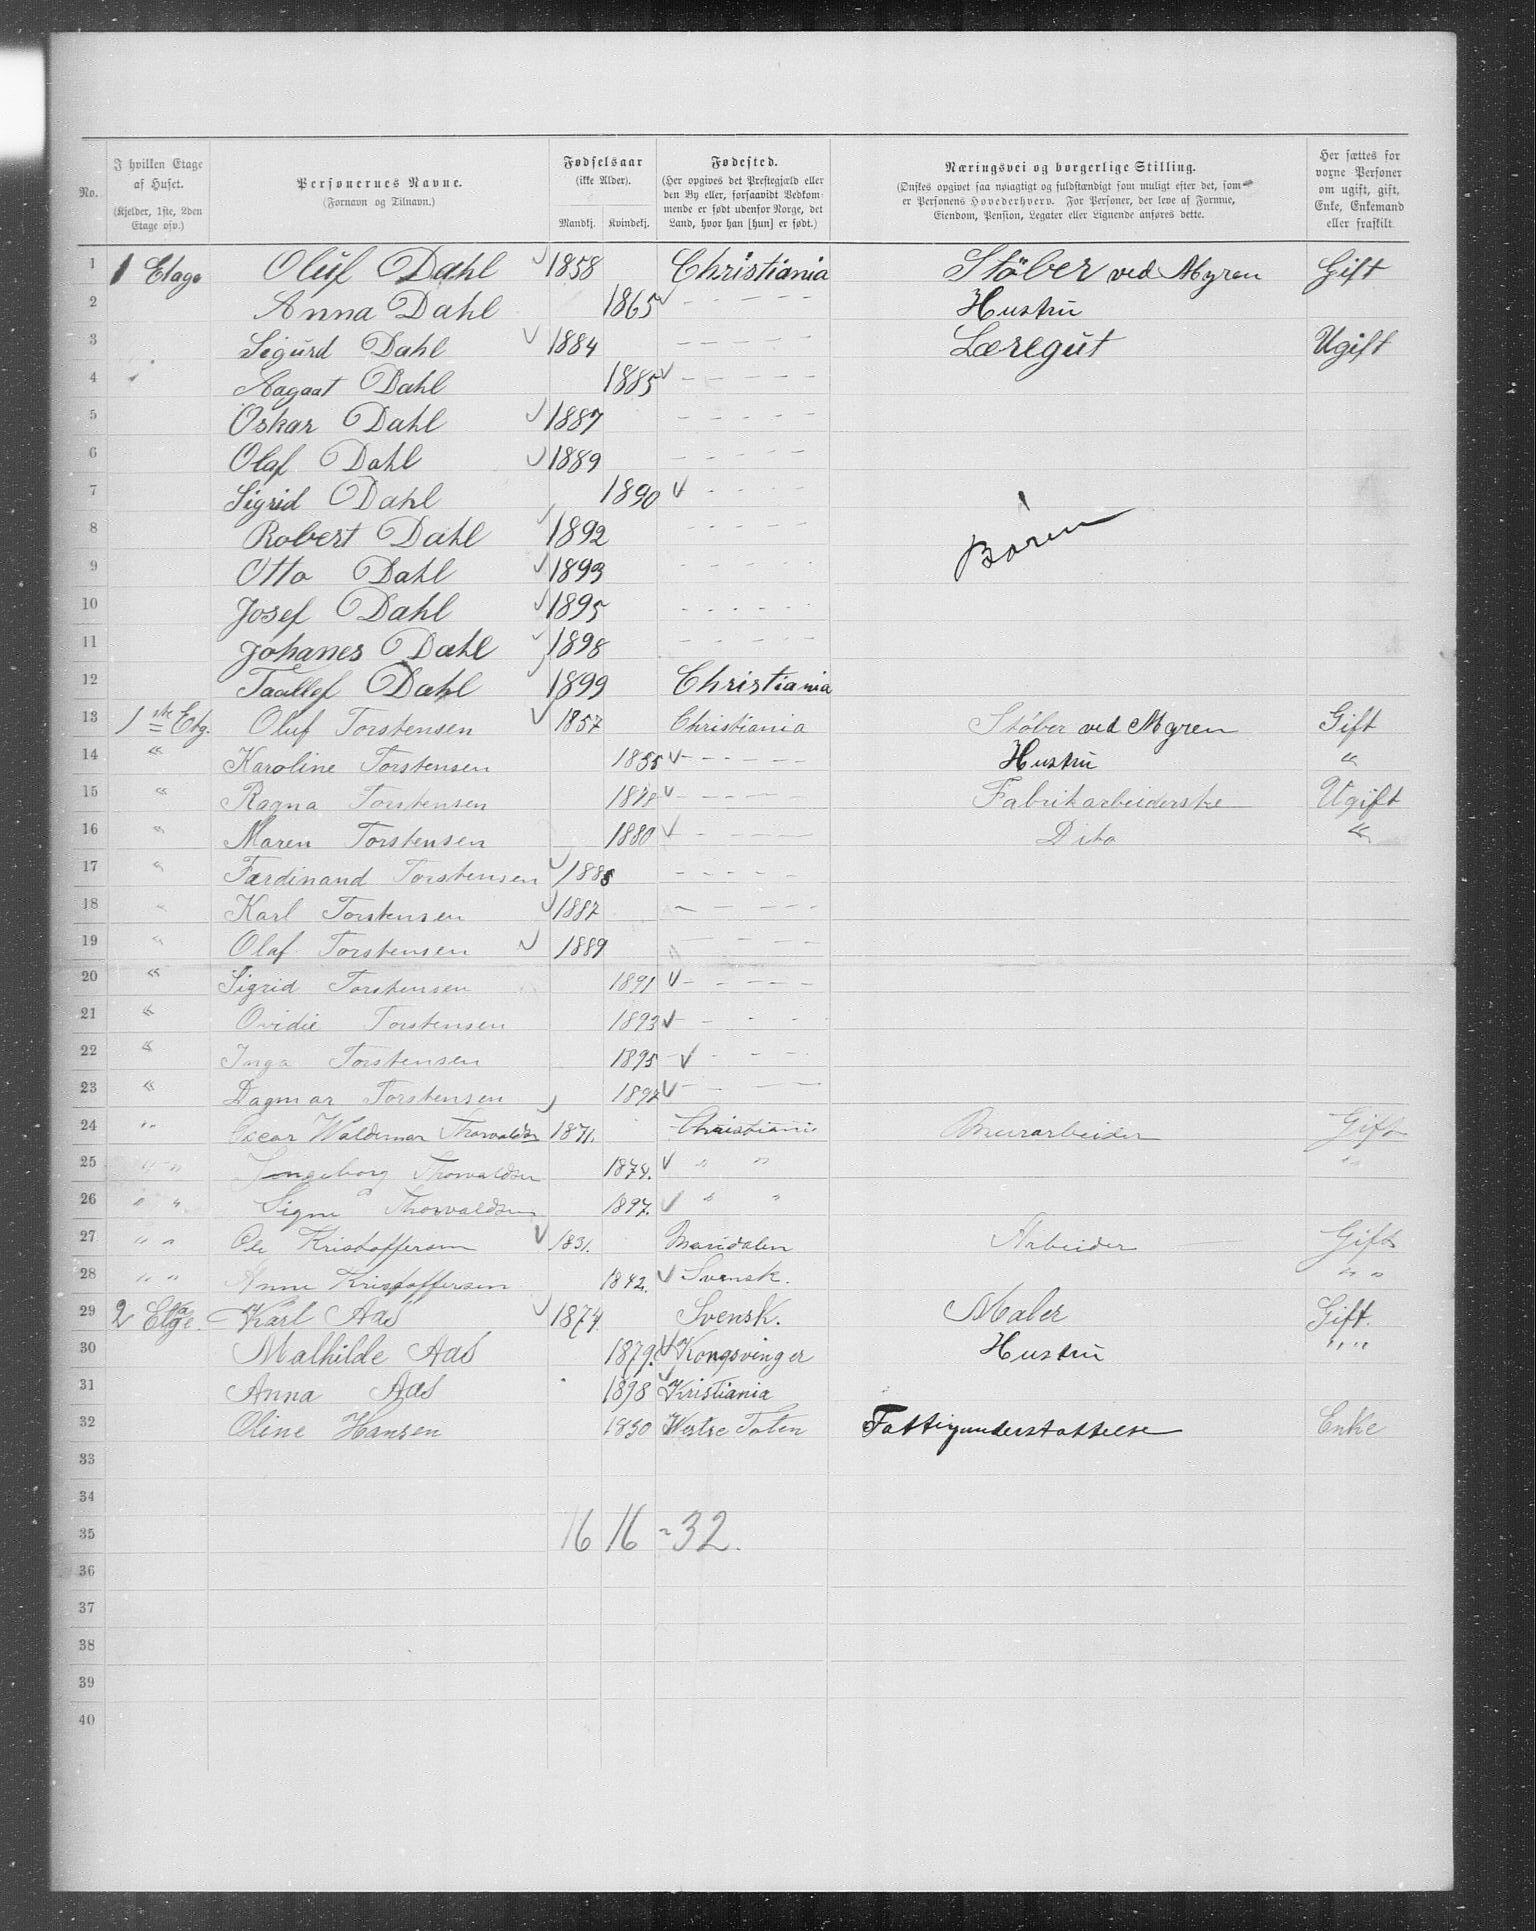 No.
I hvilken Etage af Huset. (Kjelder, 1ste, 2den Etage osv.)
Personernes Navne. (Fornavn og Tilnavn.)
Fødselsaar (ikke Alder). Mandkj. Kvindekj.
Fødested. (Her opgives det Prestegjæld eller den By eller, forsaavidt Vedkommende er født udenfor Norge, det Land, hvor han [hun] er født.)
Næringsvei og borgerlige Stilling. (Ønskes opgivet saa nøiagtigt og fuldstændigt som muligt efter det, som er Personens Hovederhverv. For Personer, der leve af Formue, Eiendom, Pension, Legater eller Lignende anføres dette.
Her sættes for voxne Personer om ugift, gift, Enke, Enkemand eller fraskilt.
1 1 Etage Oluf Dahl 1858 Christiania Støber ved Myren Gift
2 Anna Dahl 1865 - - - - Hustru
3 Sigurd Dahl 1884 - - - - Læregut Ugift
4 Aagaat Dahl 1885 - - - -
5 Oskar Dahl 1887 - - - -
6 Olaf Dahl 1889 - - - -
7 Sigrid Dahl 1890 - - - -
8 Robert Dahl 1892 - - - - Børn
9 Otto Dahl 1893 - - - -
10 Josef Dahl 1895 - - - -
11 Johanes Dahl 1898 - - - -
12 Dahl 1899 Christiania
13 1ste Etg. Oluf Torstensen 1857 Christiania Støber ved Myren Gift
14 " Karoline Torstensen 1855 - - - - Hustru "
15 " Ragna Torstensen 1878 - - - - Fabrikarbeiderske Ugift
16 " Maren Torstensen 1880 - - - Dito "
17 " Færdinand Torstensen 1885 - - - -
18 " Karl Torstensen 1887 - - - -
19 " Olaf Torstensen 1889 - - - -
20 " Sigrid Torstensen 1891 - - - -
21 " Ovidie Torstensen 1893 - - - -
22 " Inga Torstensen 1895 - - - -
23 " Dagmar Torstensen 1897 - - -
24 " Oscar Waldemar Thorvaldsen 1871. Christiania Murarbeider Gift
25 " " Ingeborg Thorvaldsen 1874. " " "
26 " " Signe Thorvaldsen 1897. " "
27 " " Ole Kristoffersen 1831. Maridalen Arbeider Gift
28 " " Anne Kristoffersen 1842. Svensk. " "
29 2 Etage. Karl Aas 1874 Svensk. Maler Gift.
30 Mathilde Aas 1879. Kongsvinger Hustru " "
31 Anna Aas 1898 Kristiania
32 Oline Hansen 1830 Westre Toten Fattigunderstøttelse Enke
33
34
35 16 16 = 32.
36
37
38
39
40